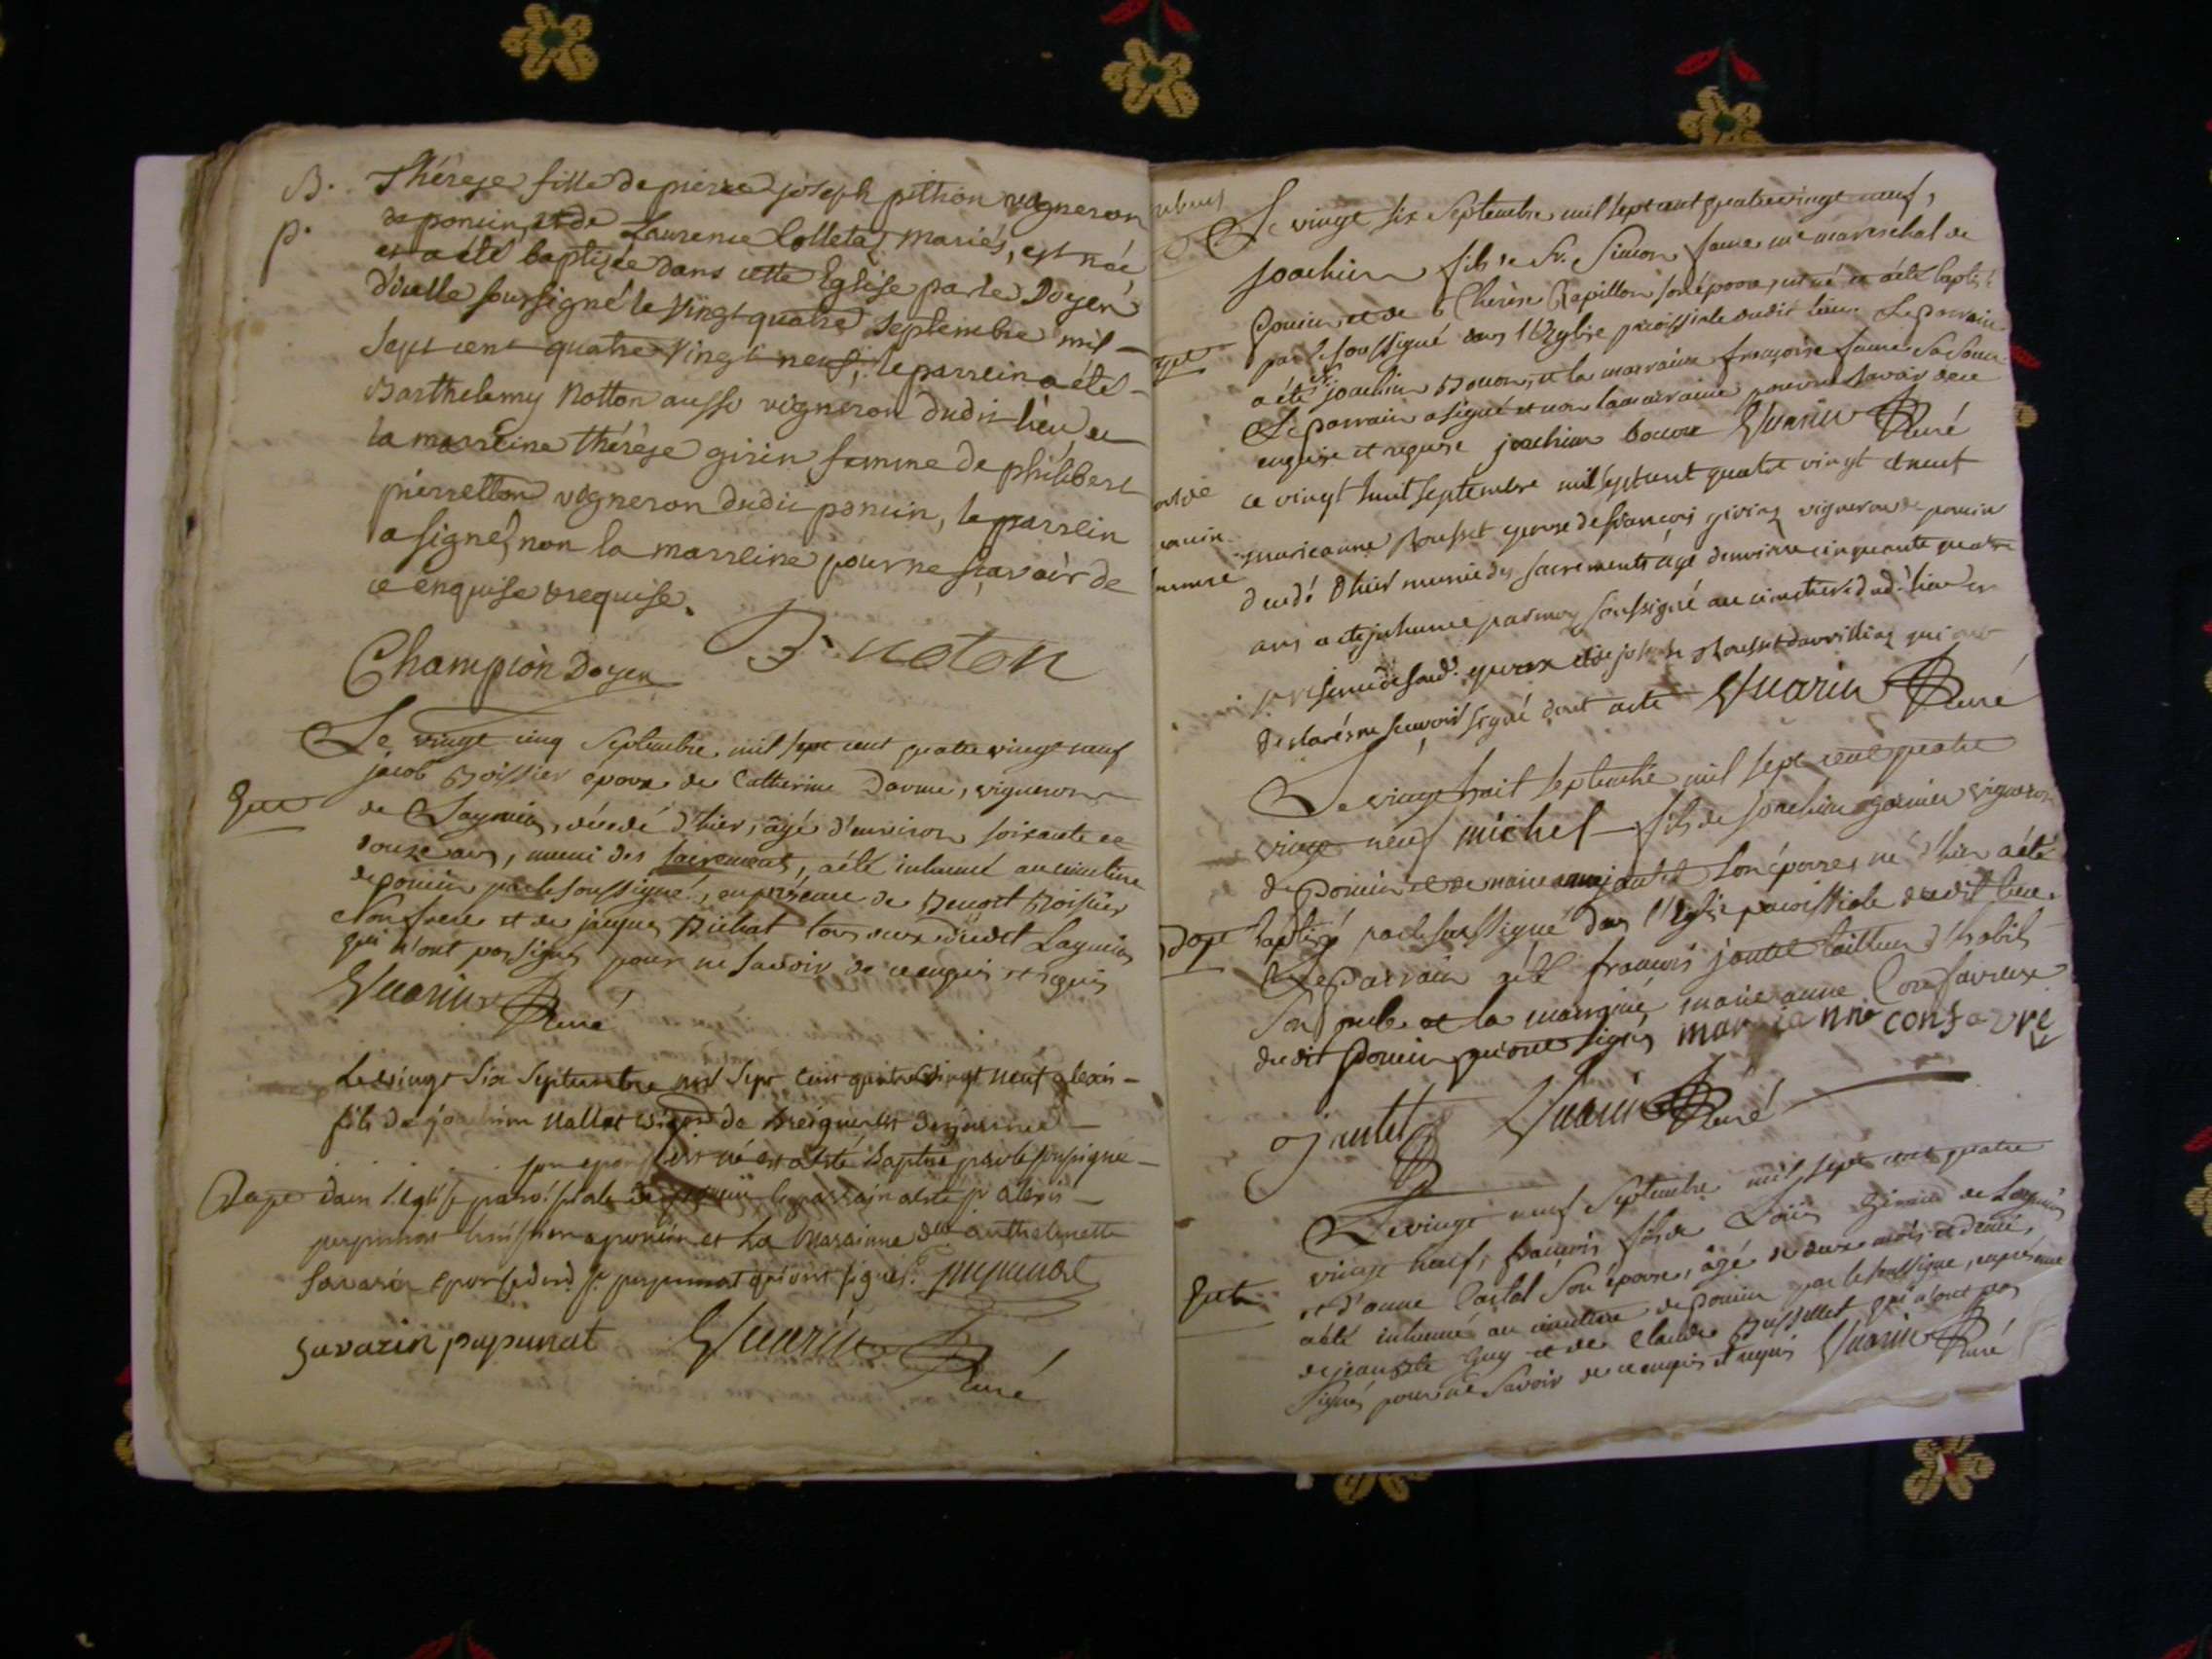 B. Thérèse fille de pierre joseph pithion vigneron
p. de poncin, et de Laurence Colleta mariés, est née
et a été baptisée dans cette Eglise par le Doyen
d'icelle soussigné le vingt quatre septembre mil
sept cent quatre vingt neuf, le parrein a été
Barthelemy Notton aussi vigneron dudit lieu, et
la marreine thérèse girin femme de philibert
pierretton vigneron dudit poncin, le parrein
a signé, non la marreine pour ne sçavoir de
ce enquise & requise.
Champion Doyen B. noton
Le vingt cinq Septembre mil sept cent quatre vingt neuf
jacob Boissier époux de Catherine Darme, vigneron
de Leymia, décédé d'hier, âgé d'environ soixante et
douze ans, muni des sacrements, a été inhumé au cimetière
de poncin par le soussigné, en présence de Benoit Boissier
son frere et de jacques Bichat tous deux dudit Leymia
qui n'ont pas signés pour ne savoir de ce enquis et requis
Guarin Curé
Le vingt Six Septembre mil Sept Cent quatre vingt neuf alexis
fils de joachim Vallet de et de
son est né et a été Baptisé par le soussigné
Bape dans l'Eglise paroissiale de le parrain a été sr alexis
a poncin et La Maraine dlle anthelmette
Savarin épouse dud. sr qui ont signés.
Savarin pupunat Guarin Curé
Le vingt six Septembre mil sept cent quatre vingt neuf,
joachim fils de Sr. Simon faure me mareschal de
Poncin et de Thérèse Papillon son épouse, est né et a été baptisé
par le soussigné dans l'Eglise paroissiale dudit lieu. Le parrain
a été Sr joachim Bouon, et la marraine françoise faure sa Soeur
Le parrain a signé et non la marraine pour ne savoir de ce
enquise et requise joachim Guarin Curé
ce vingt huit septembre mil sept cent quatre vingt et neuf
marieanne Rousset epouse de françois girin vigneron de poncin
d'hier munie des sacrements agé d'environ cinquante quatre
ans a été inhumée par moy soussigné au cimetiere dud. lieu en
presence de sond. epoux et de joseph Rousset qui ont
declarés ne scavoir signé dont acte Guarin Curé
Le vingt huit septembre mil sept cent quatre
vingt neuf michel fils de joachim garnier vigneron
de Poncin et de marie jantet son épouse, né d'hier a été
Bape baptisé par le soussigné dans l'Eglise paroissiale dudit lieu.
Le parrain a été françois jantet tailleur d'habits
et la marraine marie anne Confavreux
dudit Poncin qui ont signés marie anne confavre
jantet Guarin Curé
Le vingt neuf Septembre mil sept cent quatre
vingt neuf, françois fils de Loüis de Leymia
et d'anne son épouse, âgé de deux mois et demi,
a été inhumé au cimetière de Poncin par le soussigné, en présence
de jean Guy et de Claude Bussillet qui n'ont pas
signés pour ne savoir de ce enquis et requis Guarin Curé